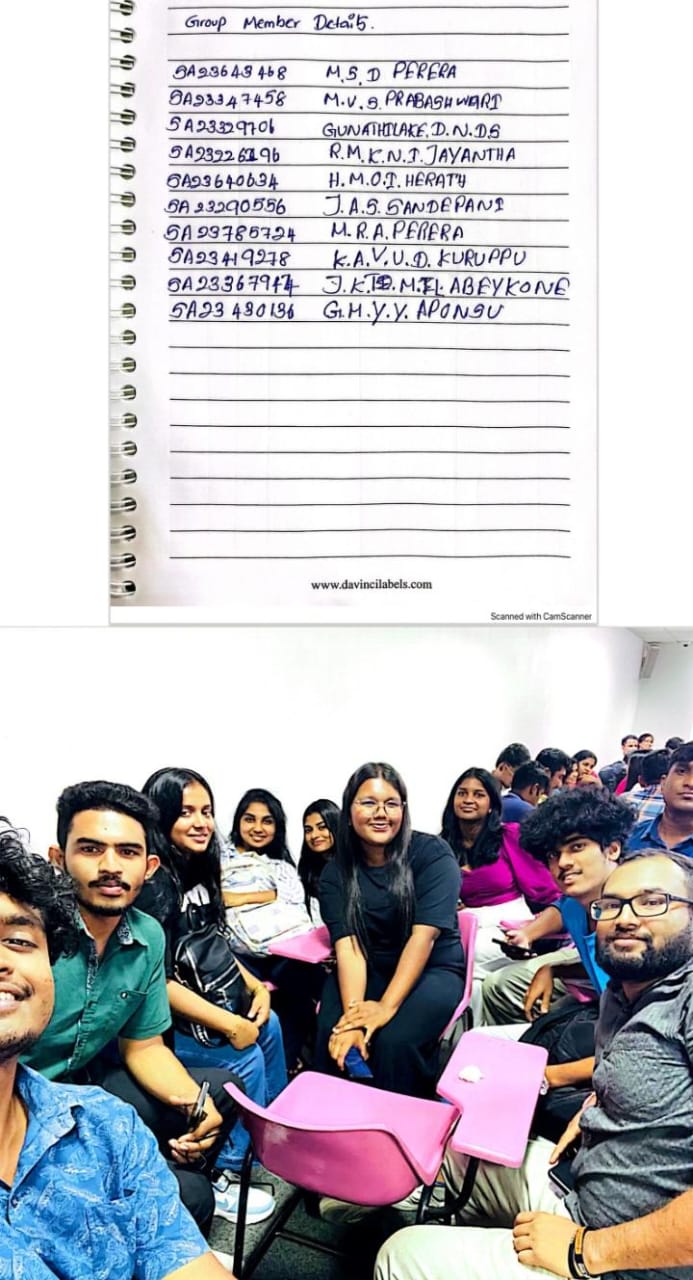 Group Member Details.
SA23643468 M.S.D PERERA
SA23347458 M.V.S. PRABASHWARI
SA23329706 GUNATHILAKE, D.N.D.S
SA23226196 R.M.K.N.I. JAYANTHA
SA23640634 H.M.O.I. HERATH
SA23290556 J.A.S. SANDEPANI
SA23785724 M.R.A. PERERA
SA23419278 K.A.V.U.D. KURUPPU
ABEYKONE
G.M.Y.Y. APONSU
www.davincilabels.com
Scanned with CamScanner